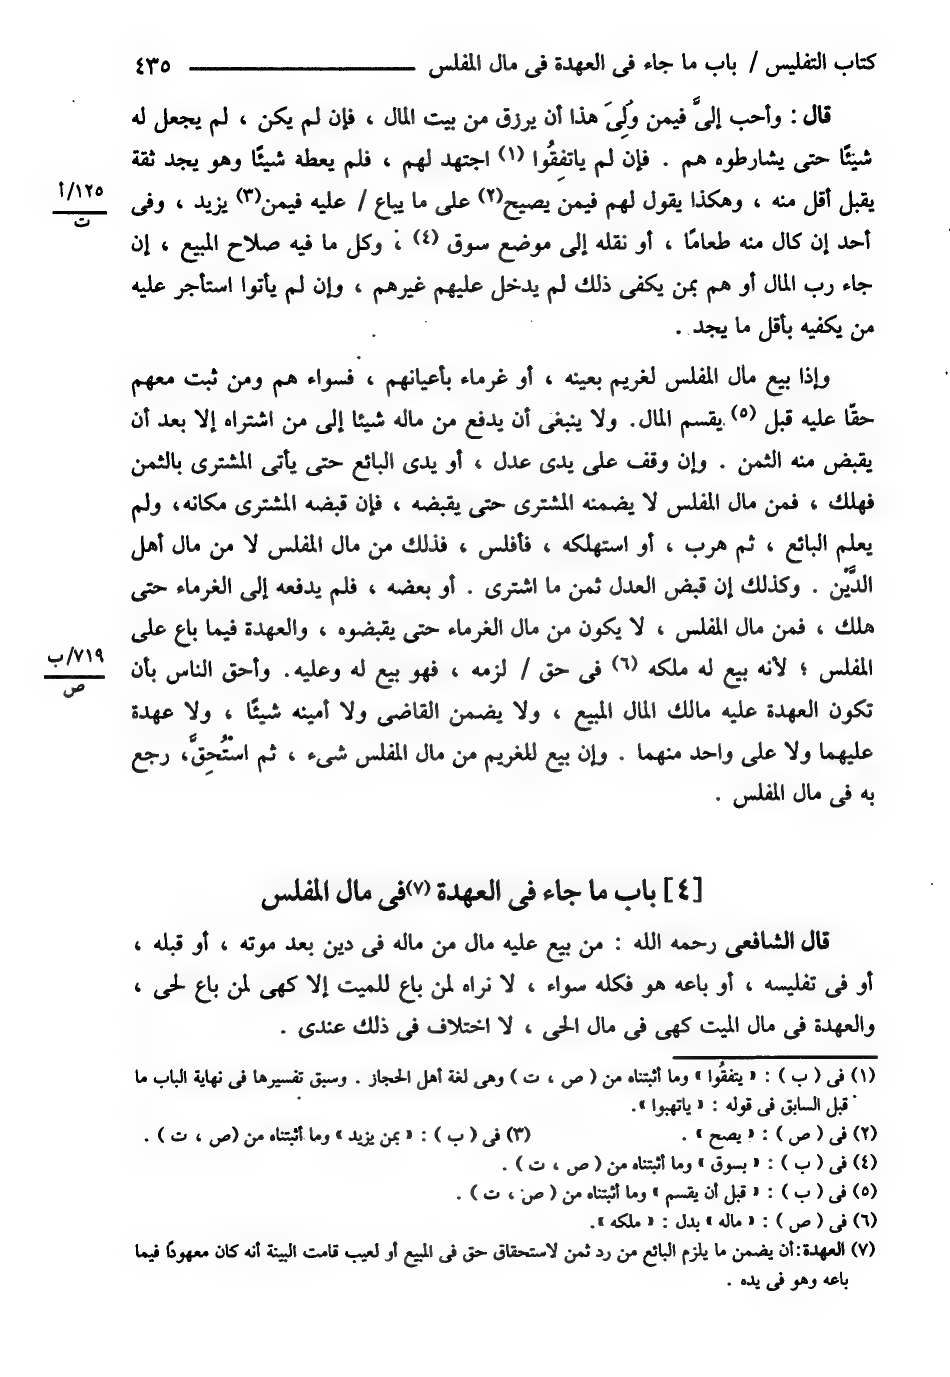 كتاب التفليس / باب ما جاء فى العهدة فى مال المفلس ــــــــــــــــــــ ٤٣٥
قال : وأحب إلىَّ فيمن وُلِىَ هذا أن يرزق من بيت المال ، فإن لم يكن ، لم يجعل له
شيئًا حتى يشارطوه هم . فإن لم ياتفِقُوا (١) اجتهد لهم ، فلم يعطه شيئًا وهو يجد ثقة
يقبل أقل منه ، وهكذا يقول لهم فيمن يصيح(٢) على ما يباع / عليه فيمن(٣) يزيد ، وفى
١٢٥/أ
ت
أحد إن كال منه طعامًا ، أو نقله إلى موضع سوق (٤) ، وكل ما فيه صلاح المبيع ، إن
جاء رب المال أو هم بمن يكفى ذلك لم يدخل عليهم غيرهم ، وإن لم يأتوا استأجر عليه
من يكفيه بأقل ما يجد .
وإذا بيع مال المفلس لغريم بعينه ، أو غرماء بأعيانهم ، فسواء هم ومن ثبت معهم
حقًا عليه قبل (٥) يقسم المال. ولا ينبغى أن يدفع من ماله شيئا إلى من اشتراه إلا بعد أن
يقبض منه الثمن . وإن وقف على يدى عدل ، أو يدى البائع حتى يأتى المشترى بالثمن
فهلك ، فمن مال المفلس لا يضمنه المشترى حتى يقبضه ، فإن قبضه المشترى مكانه، ولم
يعلم البائع ، ثم هرب ، أو استهلكه ، فأفلس ، فذلك من مال المفلس لا من مال أهل
الدَّيْن . وكذلك إن قبض العدل ثمن ما اشترى . أو بعضه ، فلم يدفعه إلى الغرماء حتى
هلك ، فمن مال المفلس ، لا يكون من مال الغرماء حتى يقبضوه ، والعهدة فيما باع على
المفلس ؛ لأنه بيع له ملكه (٦) فى حق / لزمه ، فهو بيع له وعليه. وأحق الناس بأن
٧١٩/ب
ص
تكون العهدة عليه مالك المال المبيع ، ولا يضمن القاضى ولا أمينه شيئًا ، ولا عهدة
عليهما ولا على واحد منهما . وإن بيع للغريم من مال المفلس شىء ، ثم استُحِقَّ، رجع
به فى مال المفلس .
[٤] باب ما جاء فى العهدة (٧)فى مال المفلس
قال الشافعى رحمه الله : من بيع عليه مال من ماله فى دين بعد موته ، أو قبله ،
أو فى تفليسه ، أو باعه هو فكله سواء ، لا نراه لمن باع للميت إلا كهى لمن باع لحى ،
والعهدة فى مال الميت كهى فى مال الحى ، لا اختلاف فى ذلك عندى .
(١) فى ( ب ) : « يتفقُوا » وما أثبتناه من ( ص ، ت ) وهى لغة أهل الحجاز . وسبق تفسيرها فى نهاية الباب ما
قبل السابق فى قوله : « ياتهبوا ».
(٢) فى ( ص ) : « يصح » . (٣) فى ( ب ) : « بمن يزيد » وما أثبتناه من (ص ، ت ) .
(٤) فى ( ب ) : « بسوق » وما أثبتناه من ( ص ، ت ) .
(٥) فى ( ب ) : « قبل أن يقسم » وما أثبتناه من ( ص ، ت ) .
(٦) فى ( ص ) : « ماله » بدل : « ملكه ».
(٧) العهدة:أن يضمن ما يلزم البائع من رد ثمن لاستحقاق حق فى المبيع أو لعيب قامت البينة أنه كان معهودًا فيما
باعه وهو فى يده .